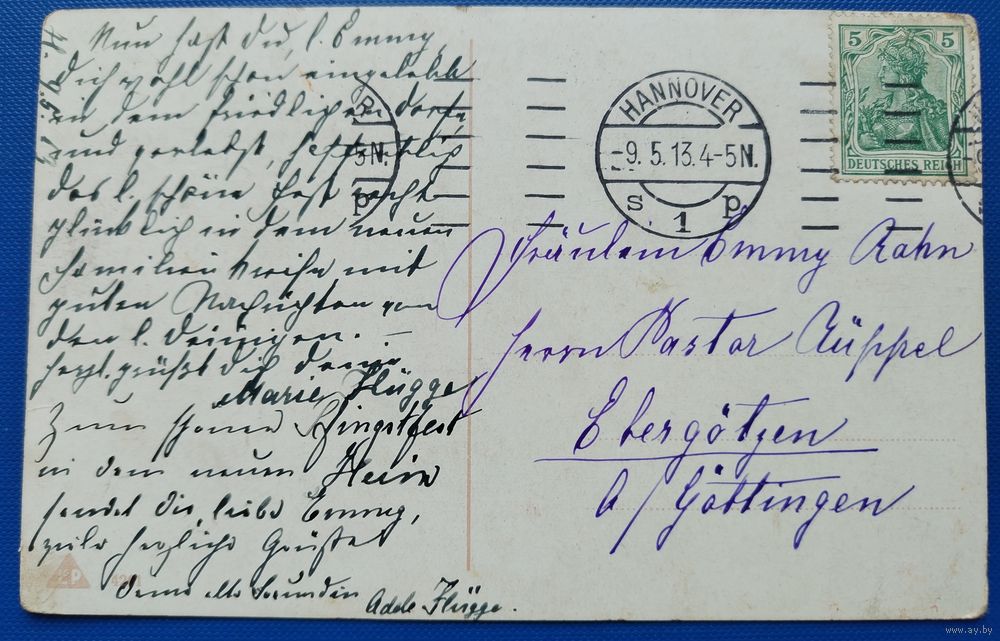 Nun hast Du, l. Emmy,
Dich wohl schon eingelebt
in dem friedlichen Dorfe
und verlebst, hoffentlich
das l. schöne Fest recht
glücklich in dem neuen
Familienkreise mit
guten Nachrichten von
den l. Deinigen. –
Herzl. grüßt Dich Deine
Marie Flügge
Zum schönen Pfingstfest
in dem neuen Heim
sendet Dir, liebe Emmy,
viele herzliche Grüße
Deine alte Freundin
Adele Flügge.
HANNOVER
-9. 5. 13. 4-5 N.
s 1 p
R
3N.
p
5 5
DEUTSCHES REICH
Fräulein Emmy Rahn
Herrn Pastor Rüppel
Ebergötzen
b/Göttingen
www.ay.by